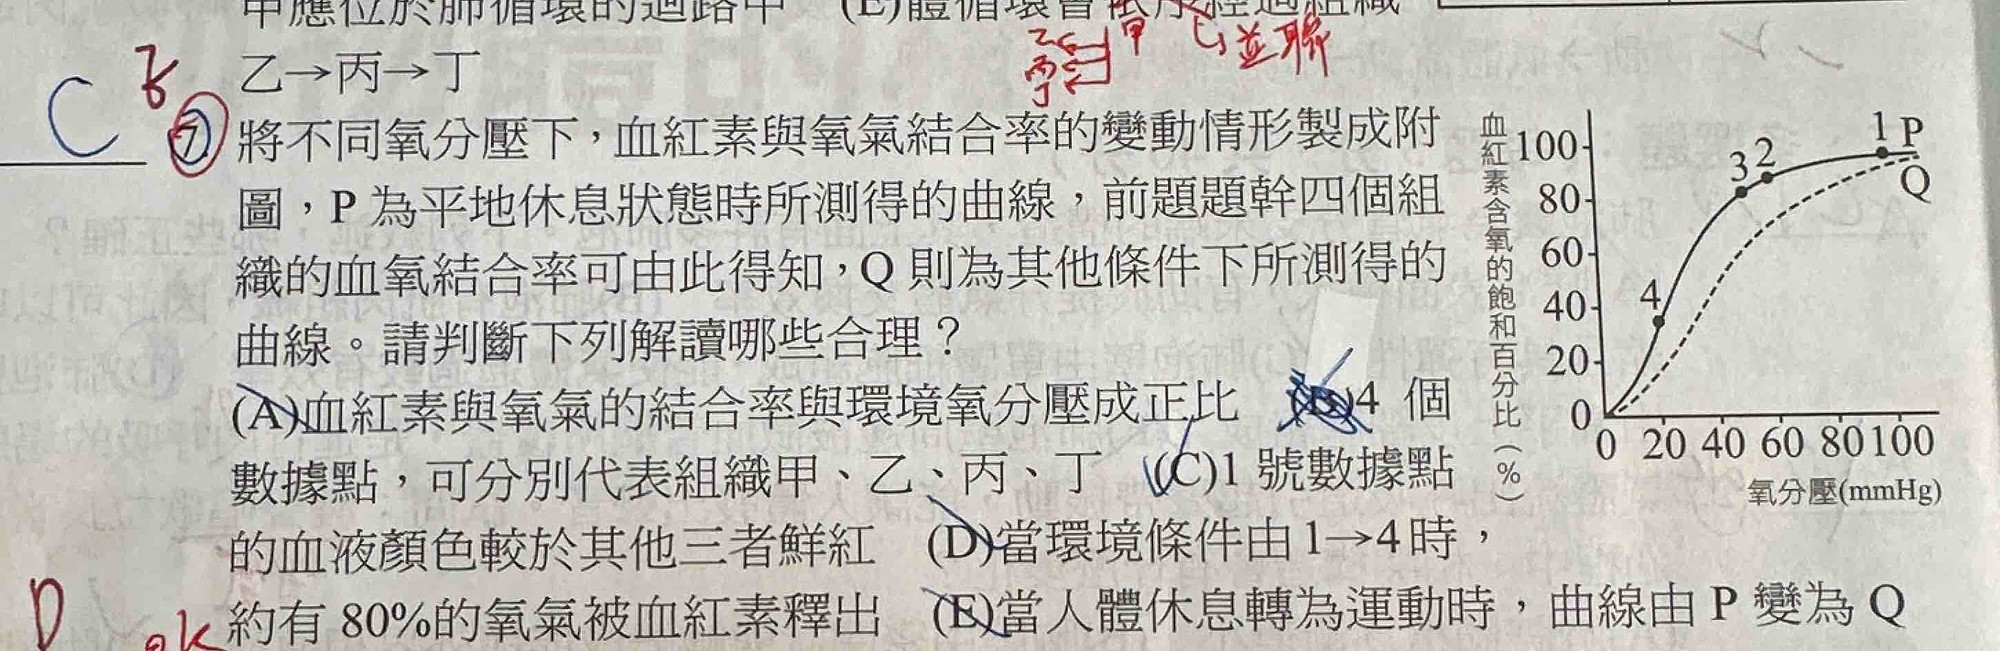 甲應位於肺循環的迴路中 (E)體循環會依序經過組織
乙→丙→丁
乙
丙
丁
甲
並聯
C
7. 將不同氧分壓下，血紅素與氧氣結合率的變動情形製成附
圖，P 為平地休息狀態時所測得的曲線，前題題幹四個組
織的血氧結合率可由此得知，Q 則為其他條件下所測得的
曲線。請判斷下列解讀哪些合理？
(A)血紅素與氧氣的結合率與環境氧分壓成正比 (B)4 個
數據點，可分別代表組織甲、乙、丙、丁 (C)1 號數據點
的血液顏色較於其他三者鮮紅 (D)當環境條件由 1→4 時，
約有 80%的氧氣被血紅素釋出 (E)當人體休息轉為運動時，曲線由 P 變為 Q
D
ok
血紅素含氧的飽和百分比(%)
100
80
60
40
20
0
1 P
3 2
Q
4
0 20 40 60 80 100
氧分壓(mmHg)